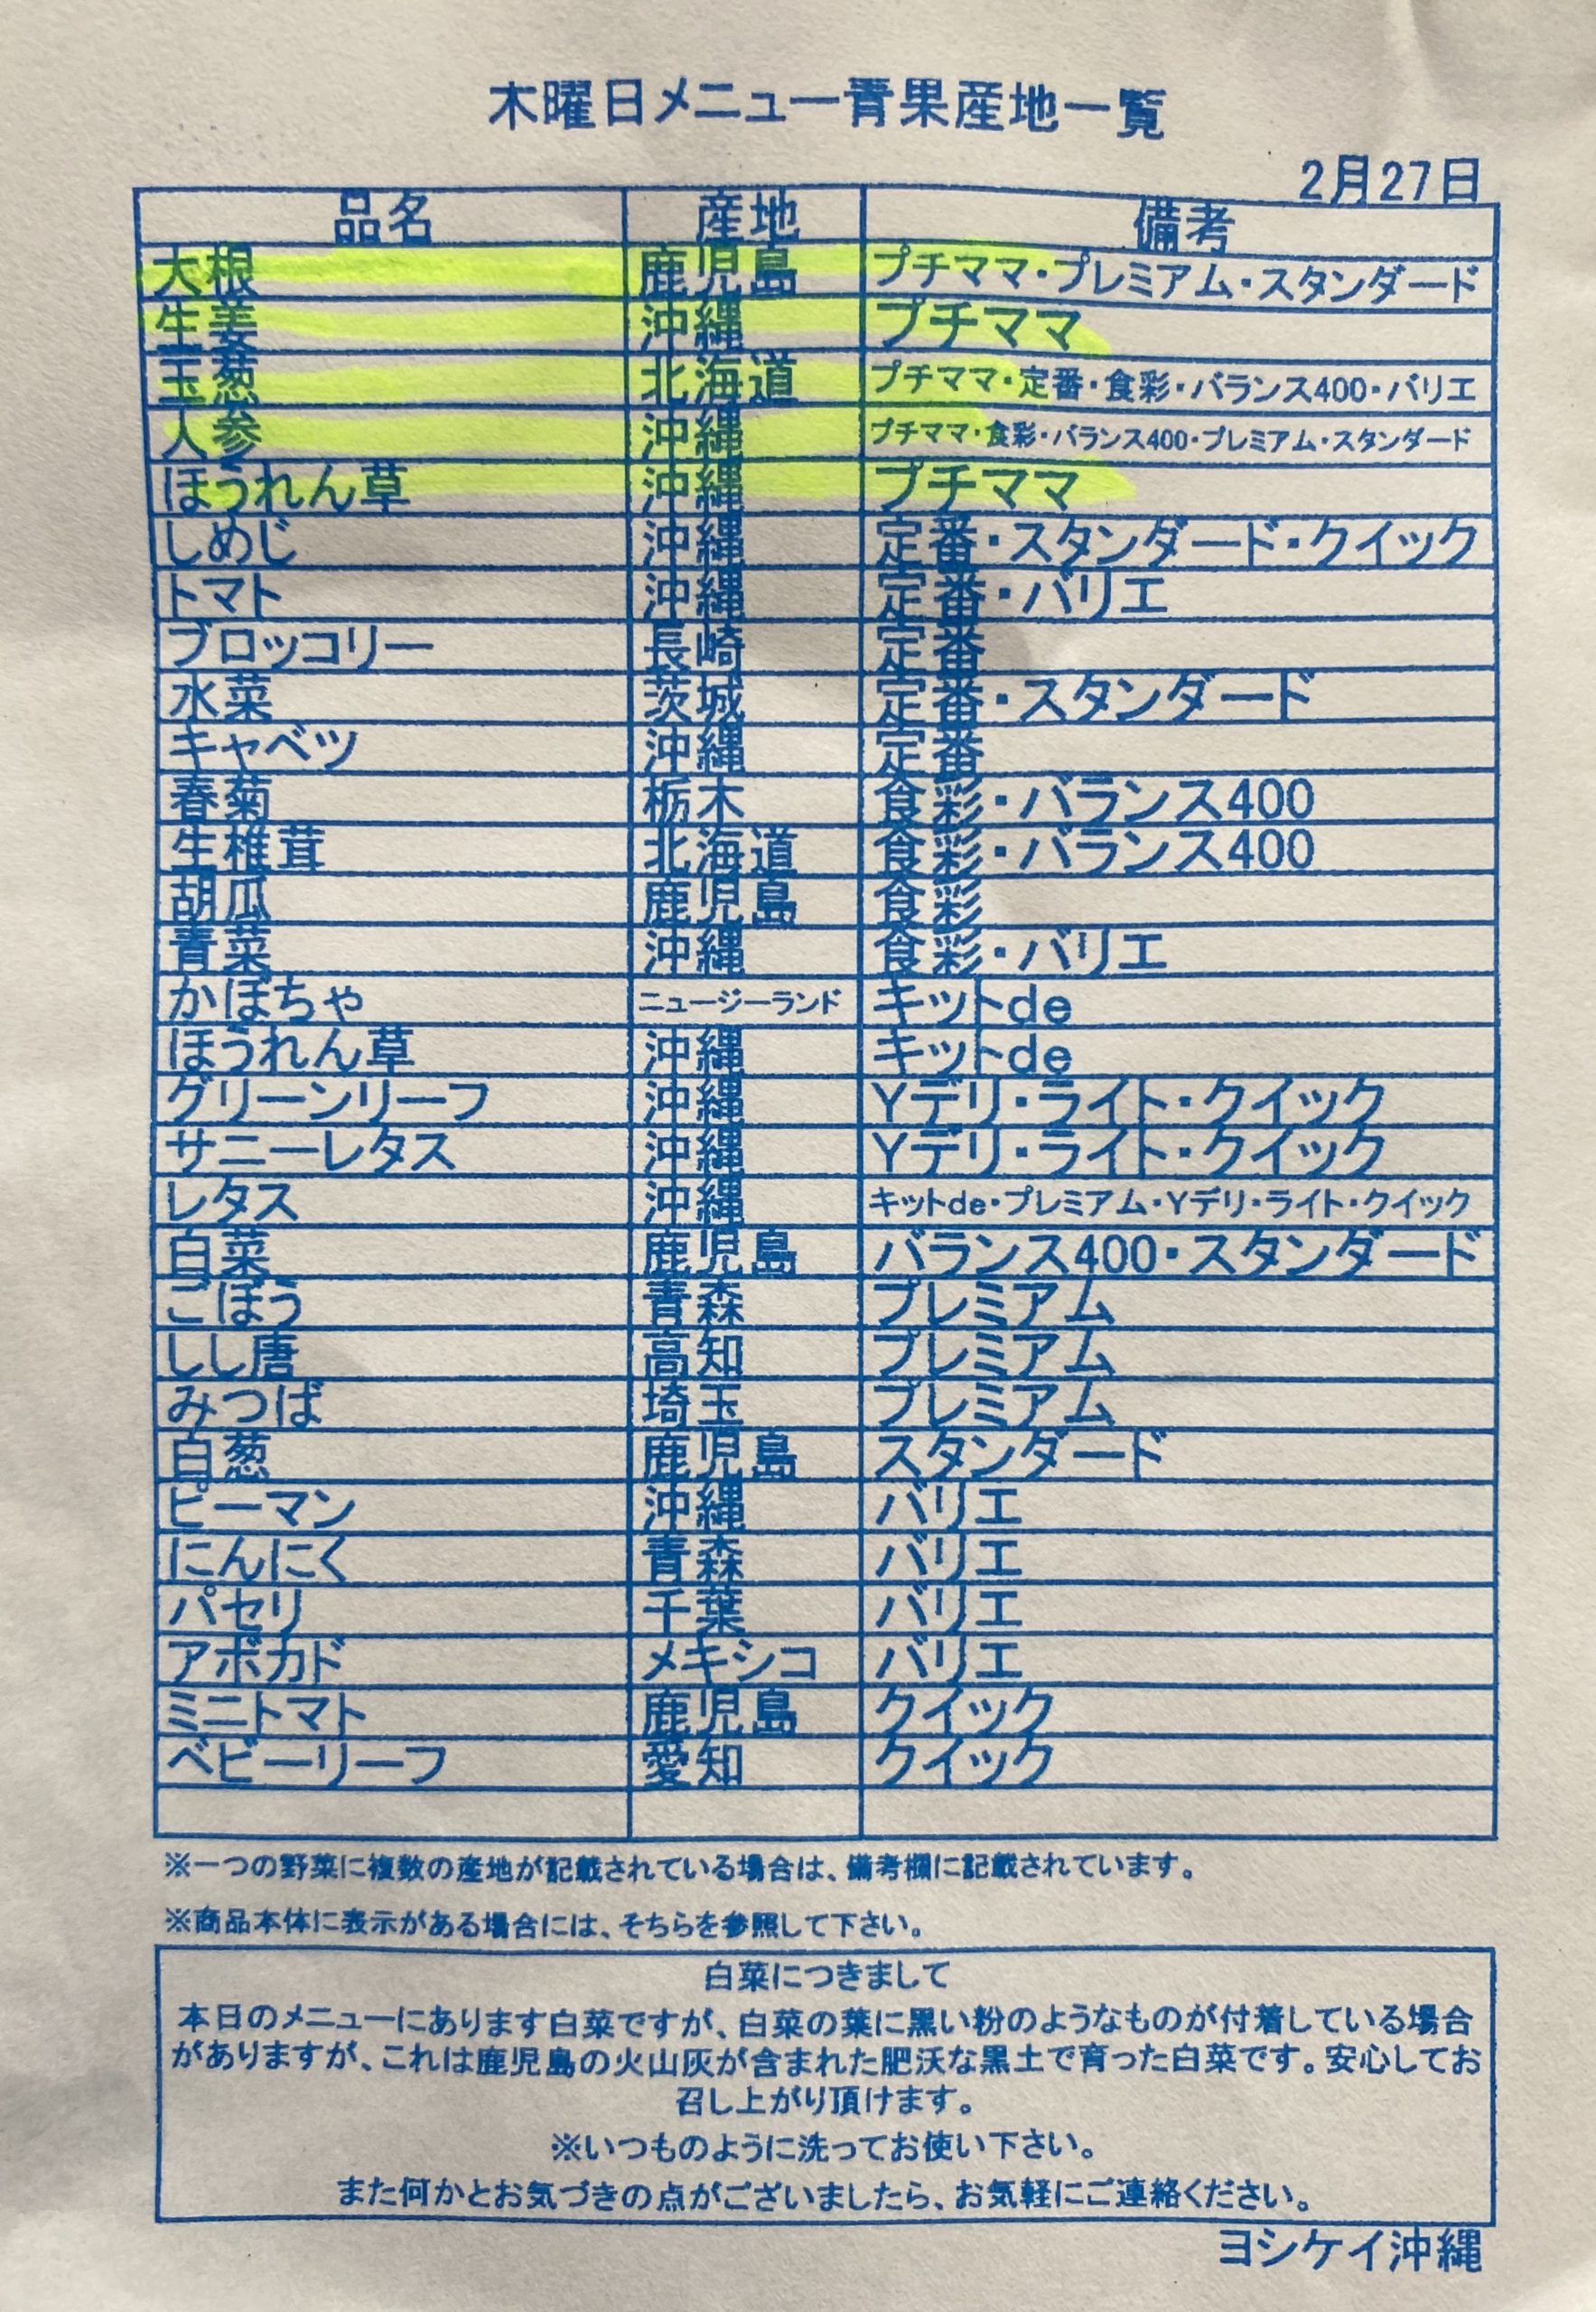 木曜日メニュー青果産地一覧
2月27日
品名 産地 備考
大根 鹿児島 プチママ・プレミアム・スタンダード
生姜 沖縄 プチママ
玉葱 北海道 プチママ・定番・食彩・バランス400・バリエ
人参 沖縄 プチママ・食彩・バランス400・プレミアム・スタンダード
ほうれん草 沖縄 プチママ
しめじ 沖縄 定番・スタンダード・クイック
トマト 沖縄 定番・バリエ
ブロッコリー 長崎 定番
水菜 茨城 定番・スタンダード
キャベツ 沖縄 定番
春菊 栃木 食彩・バランス400
生椎茸 北海道 食彩・バランス400
胡瓜 鹿児島 食彩
青菜 沖縄 食彩・バリエ
かぼちゃ ニュージーランド キットde
ほうれん草 沖縄 キットde
グリーンリーフ 沖縄 Yデリ・ライト・クイック
サニーレタス 沖縄 Yデリ・ライト・クイック
レタス 沖縄 キットde・プレミアム・Yデリ・ライト・クイック
白菜 鹿児島 バランス400・スタンダード
ごぼう 青森 プレミアム
しし唐 高知 プレミアム
みつば 埼玉 プレミアム
白葱 鹿児島 スタンダード
ピーマン 沖縄 バリエ
にんにく 青森 バリエ
パセリ 千葉 バリエ
アボカド メキシコ バリエ
ミニトマト 鹿児島 クイック
ベビーリーフ 愛知 クイック
※一つの野菜に複数の産地が記載されている場合は、備考欄に記載されています。
※商品本体に表示がある場合には、そちらを参照して下さい。
白菜につきまして
本日のメニューにあります白菜ですが、白菜の葉に黒い粉のようなものが付着している場合
がありますが、これは鹿児島の火山灰が含まれた肥沃な黒土で育った白菜です。安心してお
召し上がり頂けます。
※いつものように洗ってお使い下さい。
また何かとお気づきの点がございましたら、お気軽にご連絡ください。
ヨシケイ沖縄